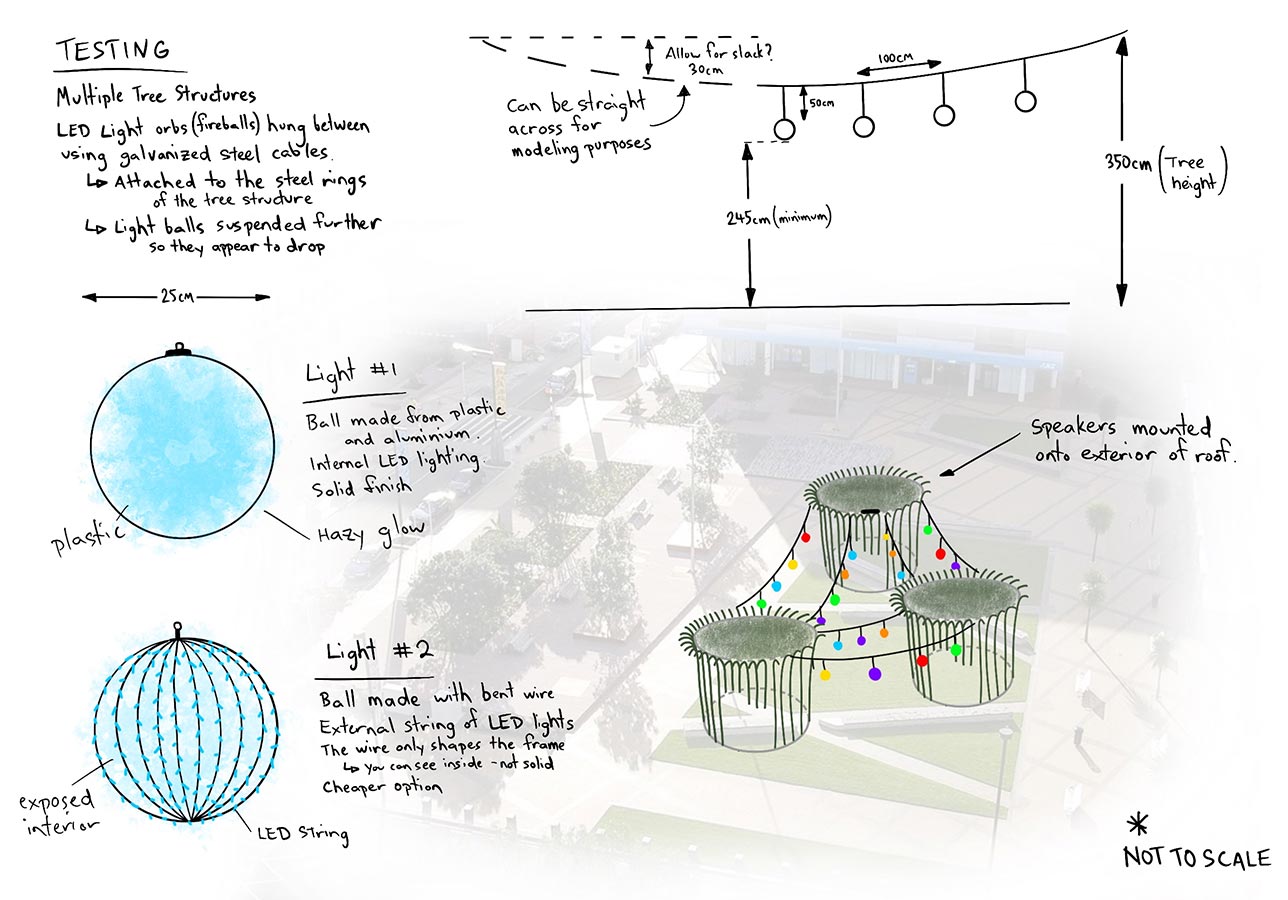 TESTING
Multiple Tree Structures
LED Light orbs (fireballs) hung between
using galvanized steel cables.
↳ Attached to the steel rings
of the tree structure
↳ Light balls suspended further
so they appear to drop
Allow for slack?
30cm
Can be straight
across for
modeling purposes
100cm
50cm
245cm (minimum)
350cm (Tree
height)
25cm
Light #1
Ball made from plastic
and aluminium.
Internal LED lighting.
Solid finish
plastic
Hazy glow
Light #2
Ball made with bent wire
External string of LED lights
The wire only shapes the frame
↳ you can see inside - not solid
Cheaper option
exposed
interior
LED String
Speakers mounted
onto exterior of roof.
*
NOT TO SCALE